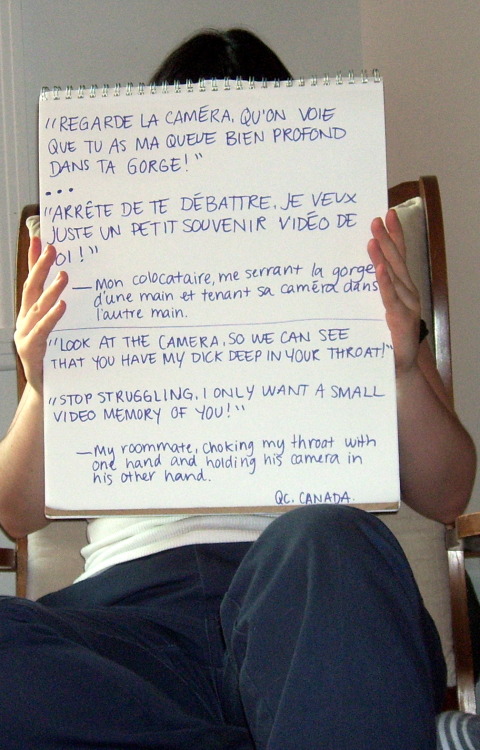 "REGARDE LA CAMÉRA, QU'ON VOIE
QUE TU AS MA QUEUE BIEN PROFOND
DANS TA GORGE!"
...
"ARRÊTE DE TE DÉBATTRE, JE VEUX
JUSTE UN PETIT SOUVENIR VIDÉO DE
OI!"
— Mon colocataire, me serrant la gorge
d'une main et tenant sa caméra dans
l'autre main.
"LOOK AT THE CAMERA, SO WE CAN SEE
THAT YOU HAVE MY DICK DEEP IN YOUR THROAT!"
"STOP STRUGGLING, I ONLY WANT A SMALL
VIDEO MEMORY OF YOU!"
— My roommate, choking my throat with
one hand and holding his camera in
his other hand.
QC. CANADA.